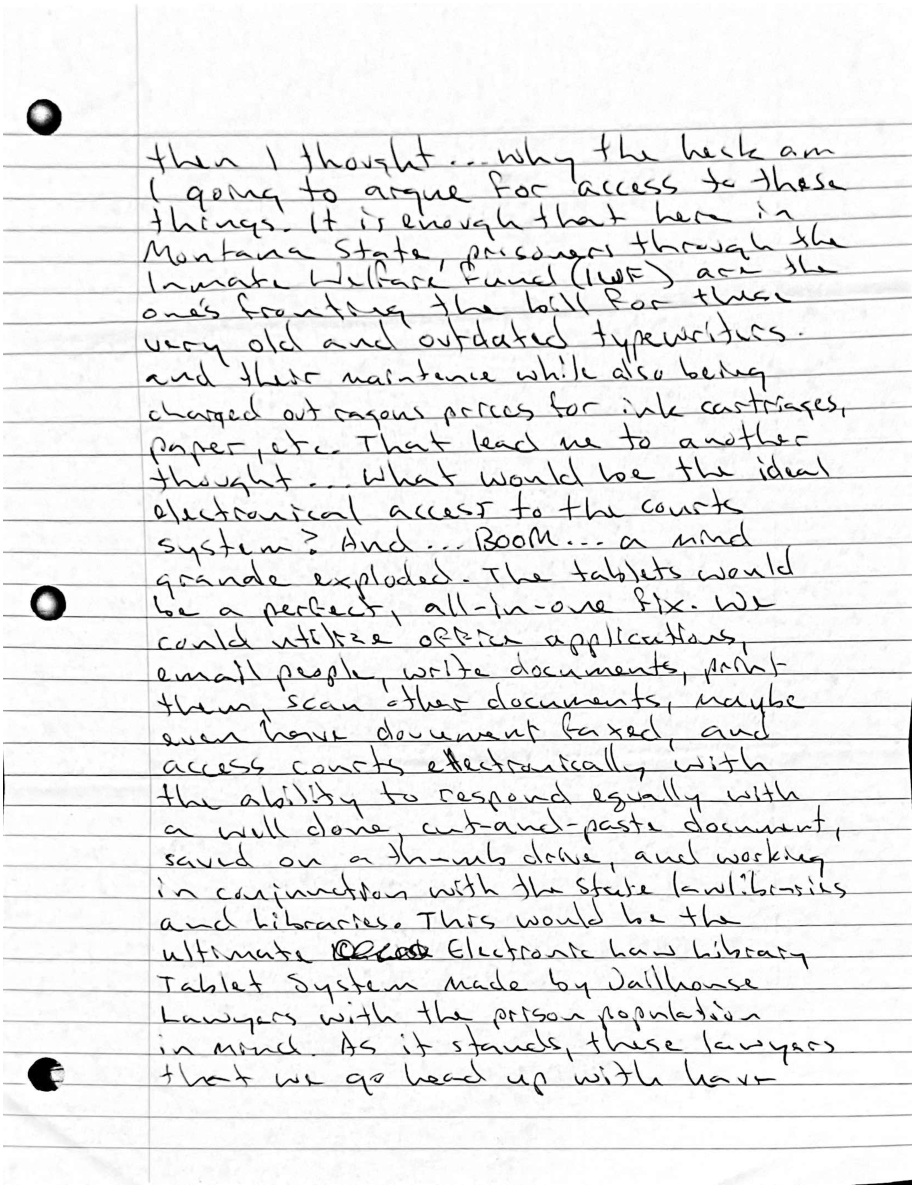 then I thought...why the heck am
I going to argue for access to these
things. It is enough that here in
Montana State, prisoners through the
Inmate Welfare Fund (IWF) are the
one's fronting the bill for these
very old and outdated typewriters.
and their maintence while also being
charged out ragous prices for ink cartriages,
paper, etc. That lead me to another
thought...what would be the ideal
electronical access to the courts
system? And...BOOM...a mind
grande exploded. The tablets would
be a perfect, all-in-one fix. We
could utilize office applications,
email people, write documents, print
them, scan other documents, maybe
even have document faxed, and
access courts electronically, with
the ability to respond equally with
a well done, cut-and-paste document,
saved on a thumb drive, and working
in conjunction with the State lawlibraries
and Libraries. This would be the
ultimate Electronic Law Library
Tablet System made by Jailhouse
Lawyers with the prison population
in mind. As it stands, these lawyers
that we go head up with have